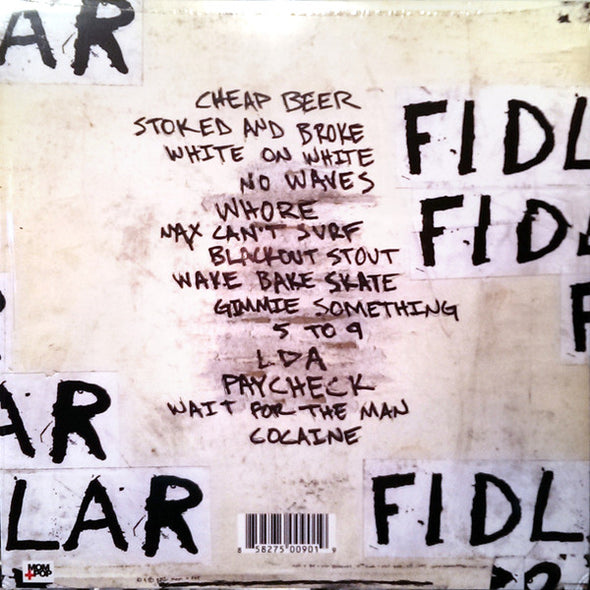 AR
CHEAP BEER
STOKED AND BROKE
WHITE ON WHITE
NO WAVES
WHORE
MAX CAN'T SURF
BLACKOUT STOUT
WAKE BAKE SKATE
GIMMIE SOMETHING
5 TO 9
LDA
PAYCHECK
WAIT FOR THE MAN
COCAINE
FIDL
FID
F
AR
LAR
FIDL
8 58275 00901 9
MOM
+POP